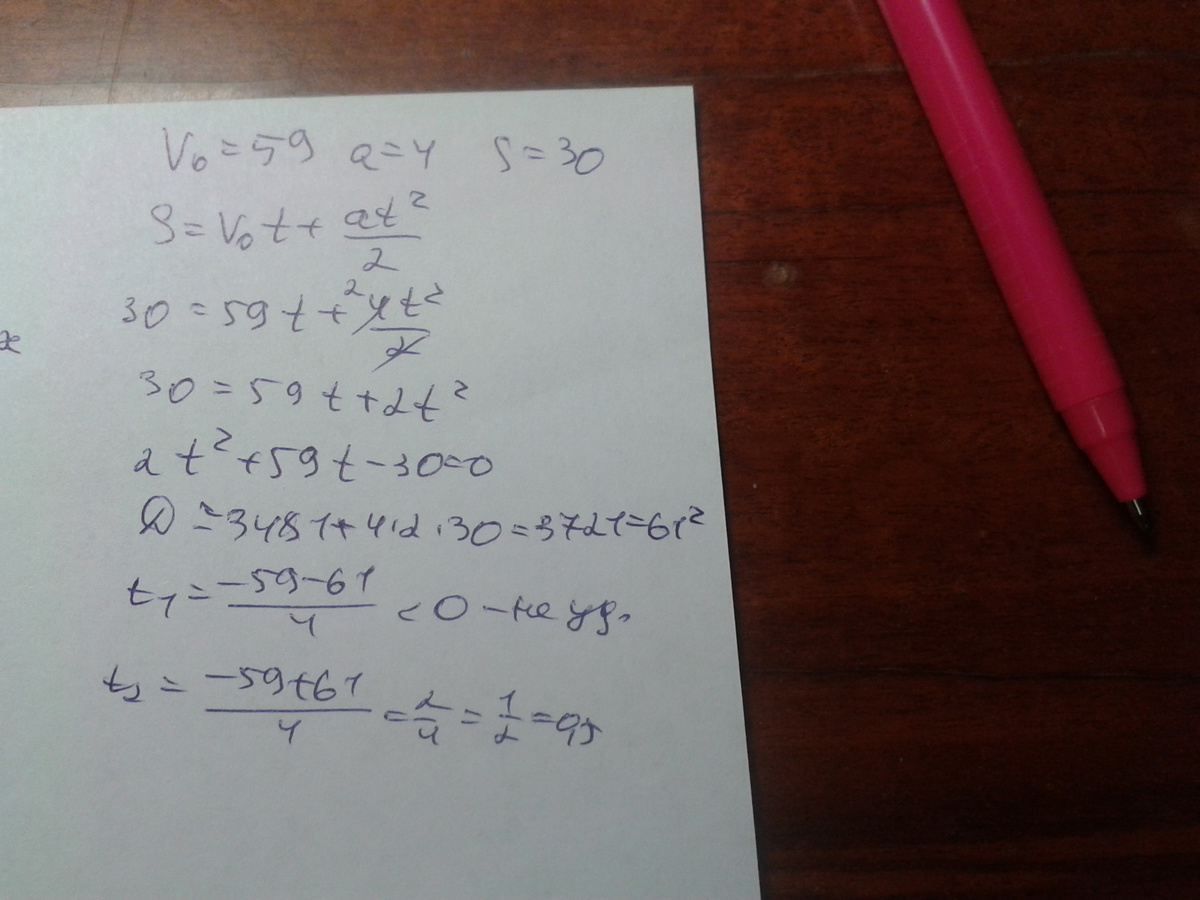 V₀ = 59 a = 4 S = 30
S = V₀t + at²/2
30 = 59t + ²4t²/2
30 = 59t + 2t²
x
2t² + 59t - 30 = 0
D = 3481 + 4·2·30 = 3721 = 61²
t₁ = (-59-61)/4 < 0 - не уд.
t₂ = (-59+61)/4 = 2/4 = 1/2 = 0,5